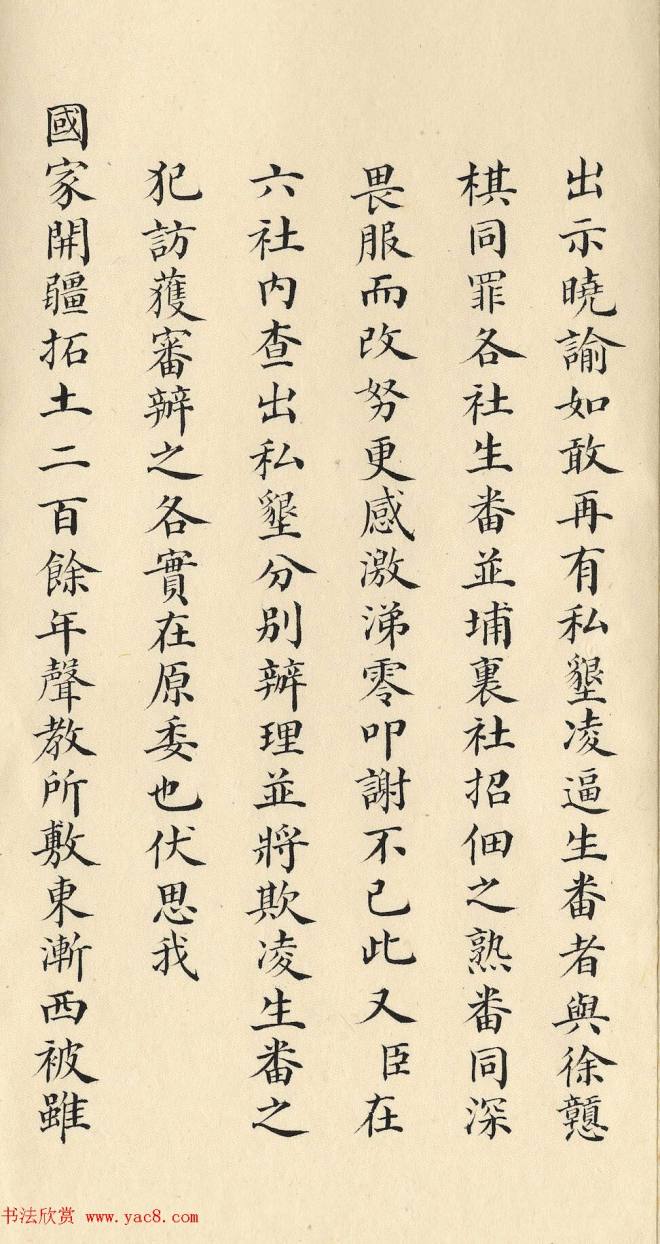 出示曉諭如敢再有私墾凌逼生番者與徐戇
棋同罪各社生番並埔裏社招佃之熟番同深
畏服而改努更感激涕零叩謝不已此又臣在
六社內查出私墾分别辦理並將欺凌生番之
犯訪獲審辦之各實在原委也伏思我
國家開疆拓土二百餘年聲教所敷東漸西被雖
书法欣赏 www.yac8.com